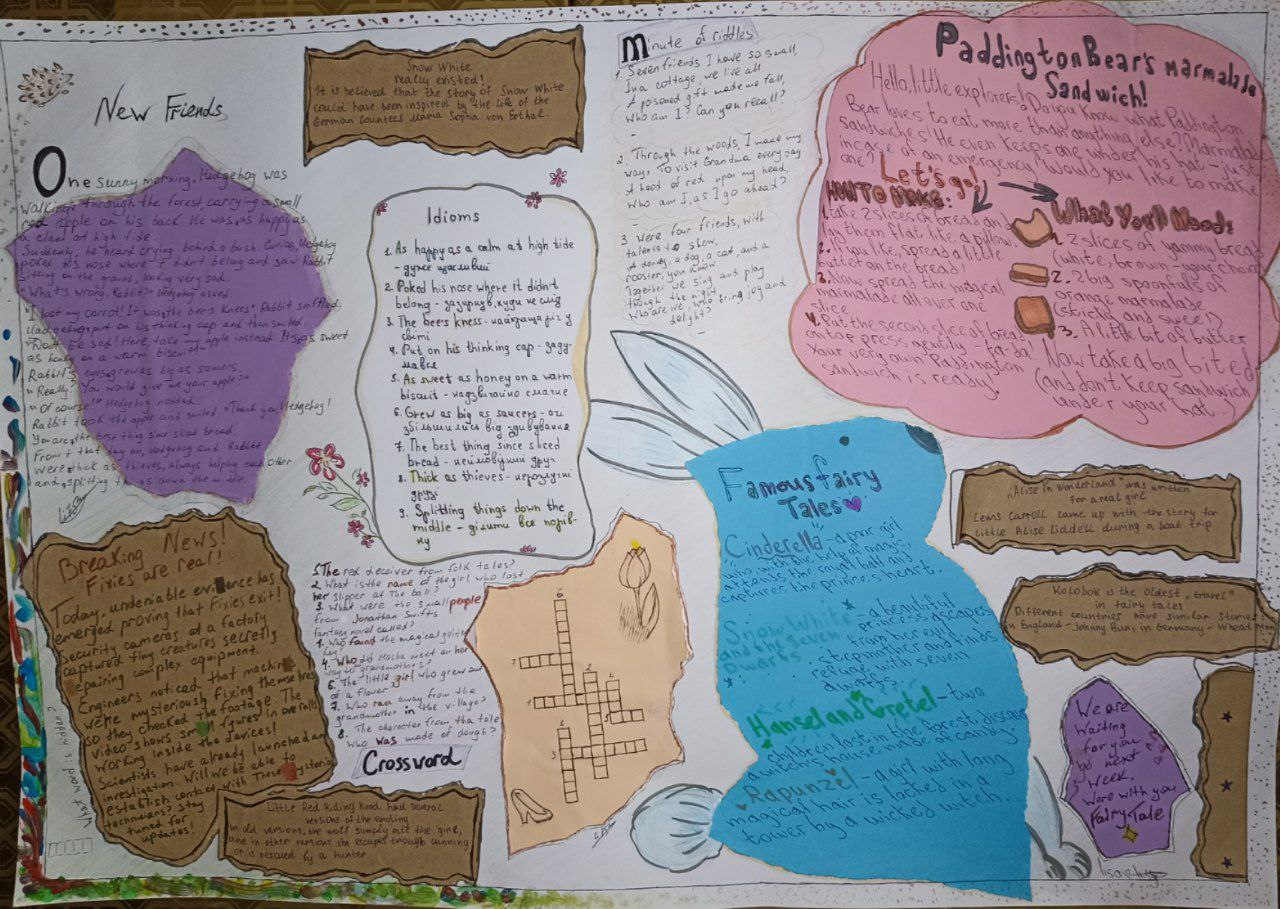 New Friends
One sunny morning, Hedgehog was
walking through the forest carrying a small
red apple on his back. He was as happy as
a clam at high tide.
Suddenly, he heard crying behind a bush. Curios, Hedgehog
poked his nose where it didn't belong and saw Rabbit
sitting on the ground, looking very sad.
"What's wrong, Rabbit?" Hedgehog asked.
"I lost my carrot! It was the bee's knees." Rabbit sniffled.
Hedgehog put on his thinking cap and then smiled.
"Don't be sad! Here, take my apple instead. It's as sweet
as honey on a warm biscuit."
Rabbit's eyes grew as big as saucers.
"Really? You would give me your apple?"
"Of course!" Hedgehog nodded.
Rabbit took the apple and smiled. "Thank you, Hedgehog!
You are the best thing since sliced bread.
From that day on, Hedgehog and Rabbit
were thick as thieves, always helping each other
and splitting things down the middle.
Snow White
really existed!
It is believed that the story of Snow White
could have been inspired by the life of the
German counttes Maria Sophia von Erthal.
Idioms
1. As happy as a calm at high tide
- дуже щасливий
2. Poked his nose where it didn't
belong - зазирнув, куди не слід
3. The bees kness - найкраща річ у
світі
4. Put on his thinking cap - заду-
мався
5. As sweet as honey on a warm
biscuit - надзвичайно смачне
6. Grew as big as saucers - очі
збільшились від здивування
7. The best thing since sliced
bread - неймовірний друг
8. Thick as thieves - нерозлучні
друзі
9. Splitting things down the
middle - ділити все порів-
ну
Minute of riddles
1. Seven friends I have so small,
In a cottage, we live all
A poisoned gift made me fall,
Who am I? Can you recall?
-
2. Through the woods, I make my
way, To visit Grandma every day.
A hood of red upon my head,
Who am I, as I go ahead?
-
3. Were four friends, with
talents to show,
A donkey, a dog, a cat, and a
rooster, you know
Together we sing and play
through the night
Who are we, who bring joy and
delight?
-
Paddington Bear's marmalade
Sandwich!
Hello, little explorers! Do you know what Paddington
Bear loves to eat more than anything else? Marmalade
sandwiches! He even keeps one under his hat - just
incase of an emergency! Would you like to make
one?
Let's go!
HOW TO MAKE:
1. take 2 slices of bread and
lay them flat like a pillow.
2. If you like, spread a little
butter on the bread!
3. Now spread the magical
marmalade all over one
slice
4. Put the second slice of bread
on top press gently - ta-da!
Your very own Paddington
sandwich is ready!
What You'll Need:
1. 2 slices of yummy bread
(white, brown - your choice
2. 2 big spoonfuls of
orange marmalade
sticky and sweet
3. A little bit of butter
Now take a big bite
(and don't keep sandwich
under your hat.)
Breaking News!
Fixies are real!
Today, undeniable evidence has
emerged proving that Fixies exit!
Security cameras at a factory
captured tiny creatures secretly
repairing complex equipment.
Engineers noticed that machines
were mysteriously fixing themselves
so they checked the footage. The
video shows small figures in overalls
working inside the devices!
Scientists have already launched an
investigation. Will we be able to
establish contact with These mysterious
technicians? Stay
tuned for
updates!
What word is hidden?
1. The red deceiver from folk tales?
2. What is the name of the girl who lost
her slipper at The ball?
3. What were the small people
from Jonathan Swift's
fantasy novel called?
4. Who found the magical golden
key?
4. Who did Masha meet on her
way to grandmother's?
6. The little girl who grew out
of a flower
7. Who ran away from the
grandmother in the village?
8. The character from the tale
who was made of dough?
Crossword
Little Red Riding Hood had several
versions of the ending
In old versions, the wolf simply ate the girl,
and in other versions she escapes trough cunning
or is rescued by a hunter
7
2
4
5
8
3
Famous fairy
Tales
Cinderella - a poor girl
who, with the help of magic,
attends the royal ball and
captures the prince's heart.
Snow White
and the 7
Dwarfs
- a beautiful
princess escapes
from her evil
stepmother and finds
refuge with seven
dwarfs.
Hansel and Gretel - two
children lost in the forest discover
a witch's house made of candy.
Rapunzel - a girl with long
magical hair is locked in a
tower by a wicked witch
"Alise in Wonderland" was written
for a real girl
Lewis Carroll came up with the story for
little Alise Liddell during a boat trip
Kolobok is the oldest "travel"
in fairy tales
Different countries have similar stories
in England - Johnny Bun, in Germany - Wheat
We are
waiting
for you
next
week.
Were with you
Fairy Tale